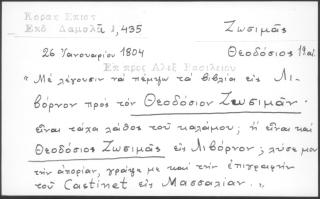 Κοραῆ Επιστ
Εκδ Δαμαλᾶ 1,435
Ζωσιμᾶς
26 Ἰανουαρίου 1804
Θεοδόσιος 19 αἰ.
Επ προς Αλεξ Βασιλείου
"Μὲ λέγουσιν τὰ πέμψω τὰ βιβλία εἰς Λι-
βόρνον πρὸς τὸν Θεοδόσιον Ζωσιμᾶν.
εἶναι τάχα λάθος τοῦ καλάμου; ἢ εἶναι καὶ
Θεοδόσιος Ζωσιμᾶς εἰς Λιβόρνον; λῦσε μου
τὴν ἀπορίαν, γράψε με καὶ τὴν ἐπιγραφὴν
τοῦ Castinet εἰς Μασσαλίαν.»